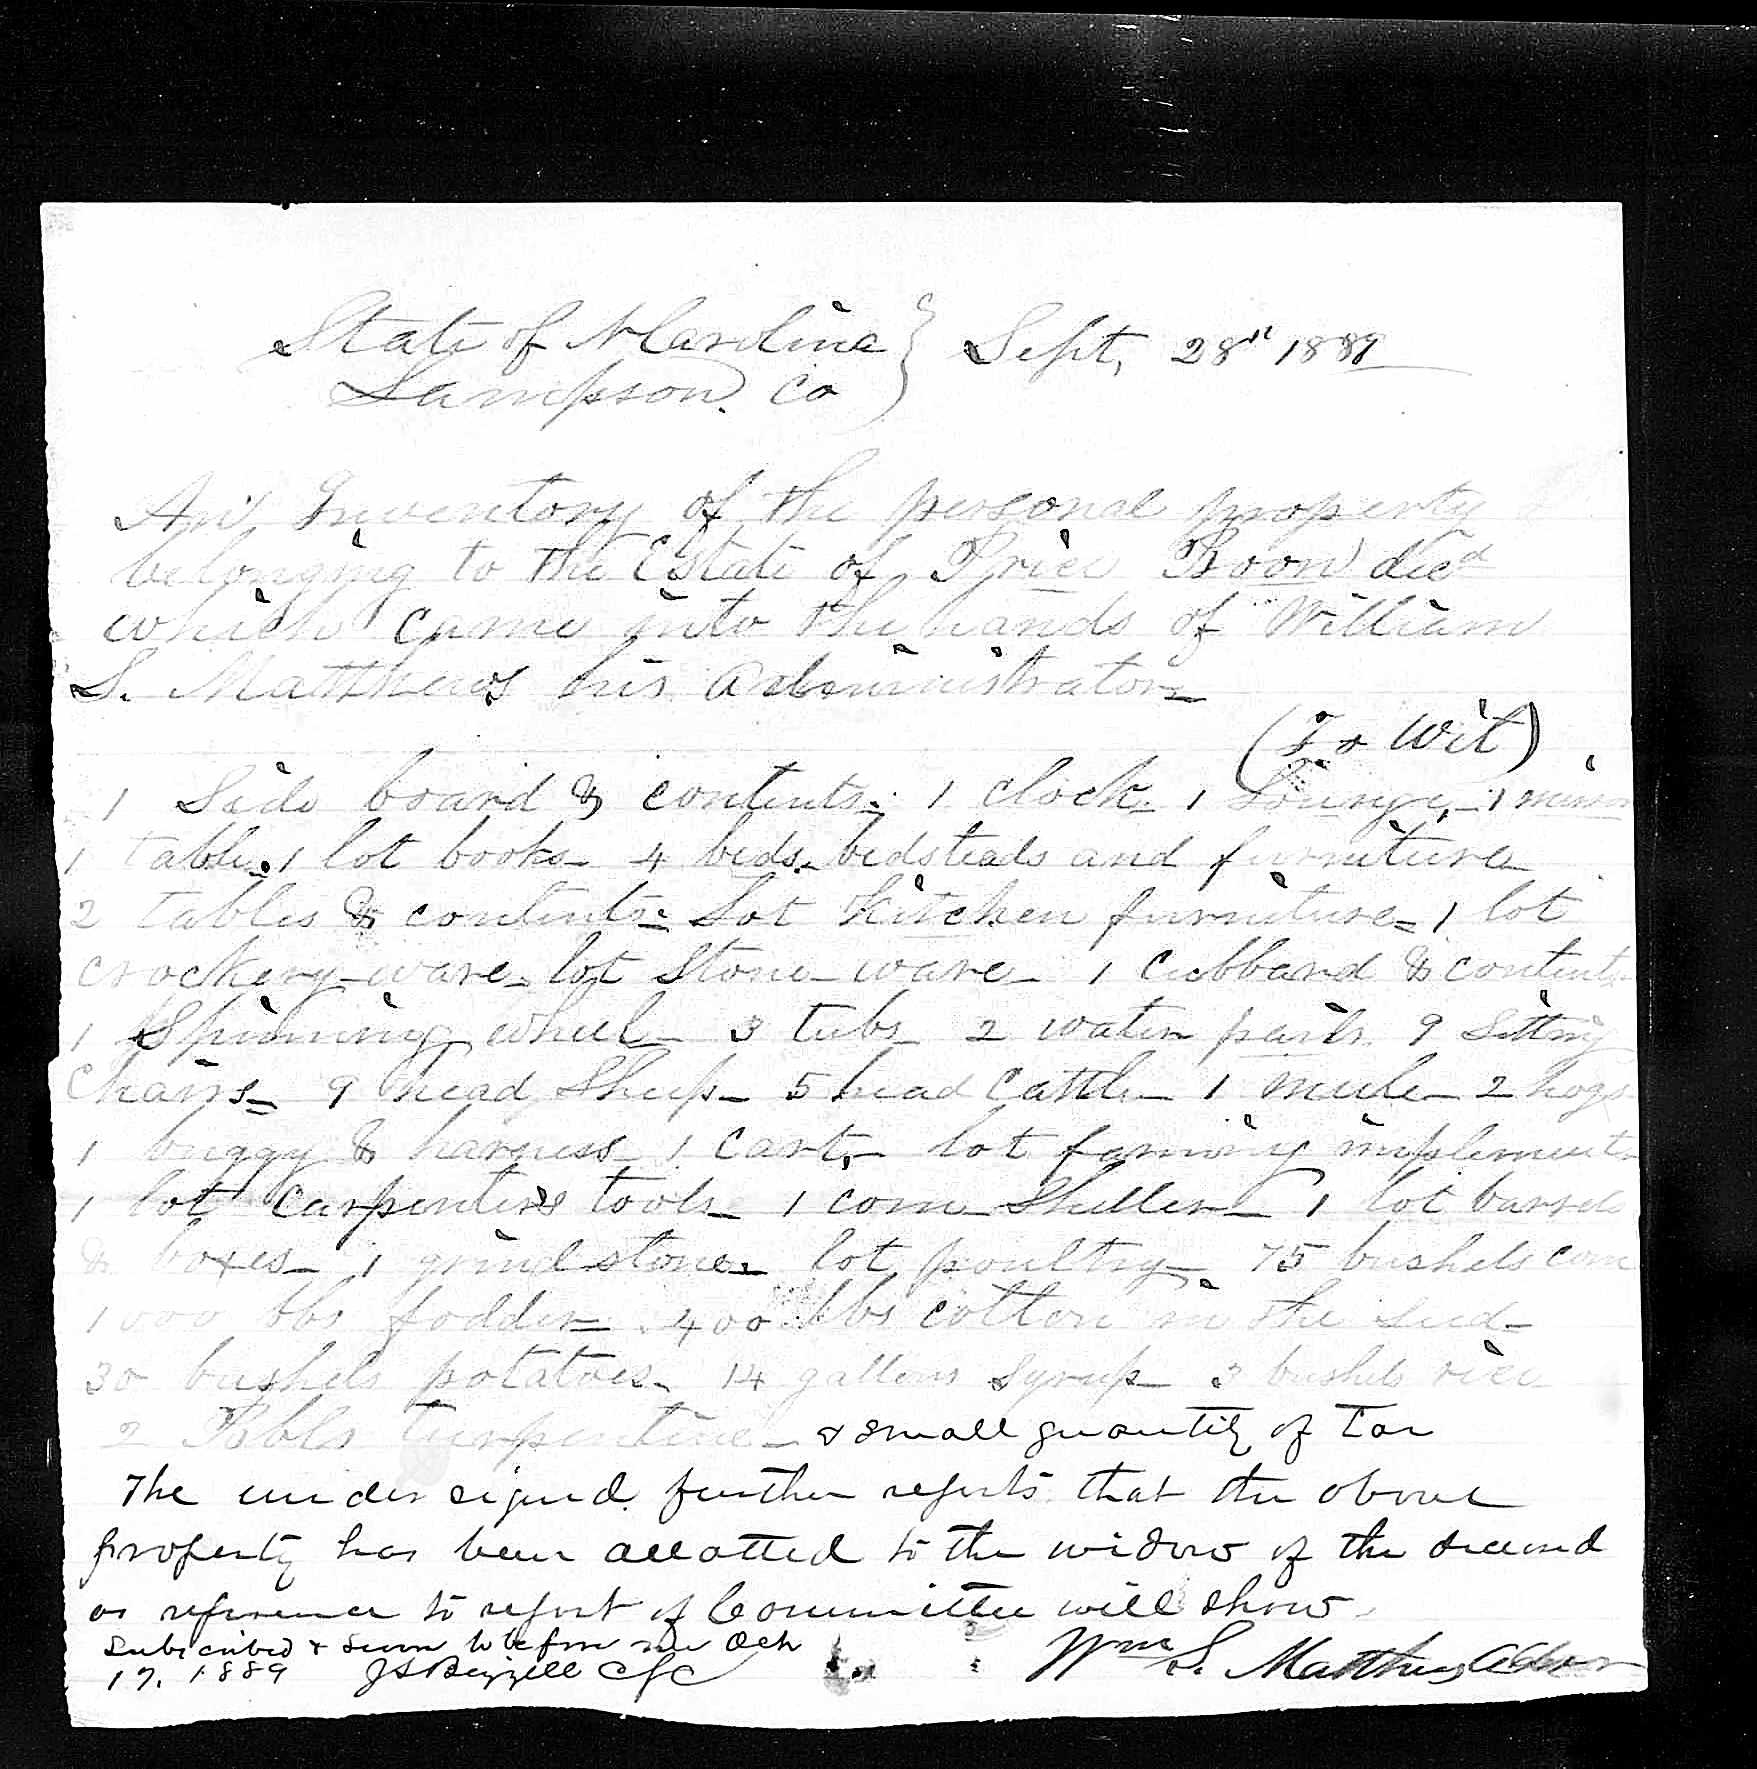 State of N Carolina } Sept, 28th 1889
Sampson. Co
An Inventory of the personal property
belonging to the Estate of Price Boon decd
which came into the hands of William
S. Matthews his Administrator
(To Wit)
1 Side board & contents. 1 clock. 1 Lounge, 1 mirror
1 table. 1 lot books 4 beds. bedsteads and furniture
2 tables & contents. Lot Kitchen furniture 1 lot
crockery ware lot Stone ware 1 Cubbard & contents
1 Spinning wheel 3 tubs 2 water pails. 9 Sitting
Chairs 9 head Sheep 5 head Cattle 1 mule 2 hogs
1 buggy & harness 1 Cart, lot farming implements
1 lot Carpenters tools 1 corn Sheller 1 lot barrels
& boxes 1 grind stone. lot poultry 75 bushels corn
1000 lbs fodder 400 lbs cotton in the Seed
30 bushels potatoes 14 gallons Syrup 3 bushels rice
2 Bbls turpentine & small quantity of Tar
The undersigned further reports that the above
property has been allotted to the widow of the deceased
as reference to report of Committee will show.
Subscribed & sworn to before me Oct
17. 1889 J S Bizzell CSC
Wm S. Matthews Admr